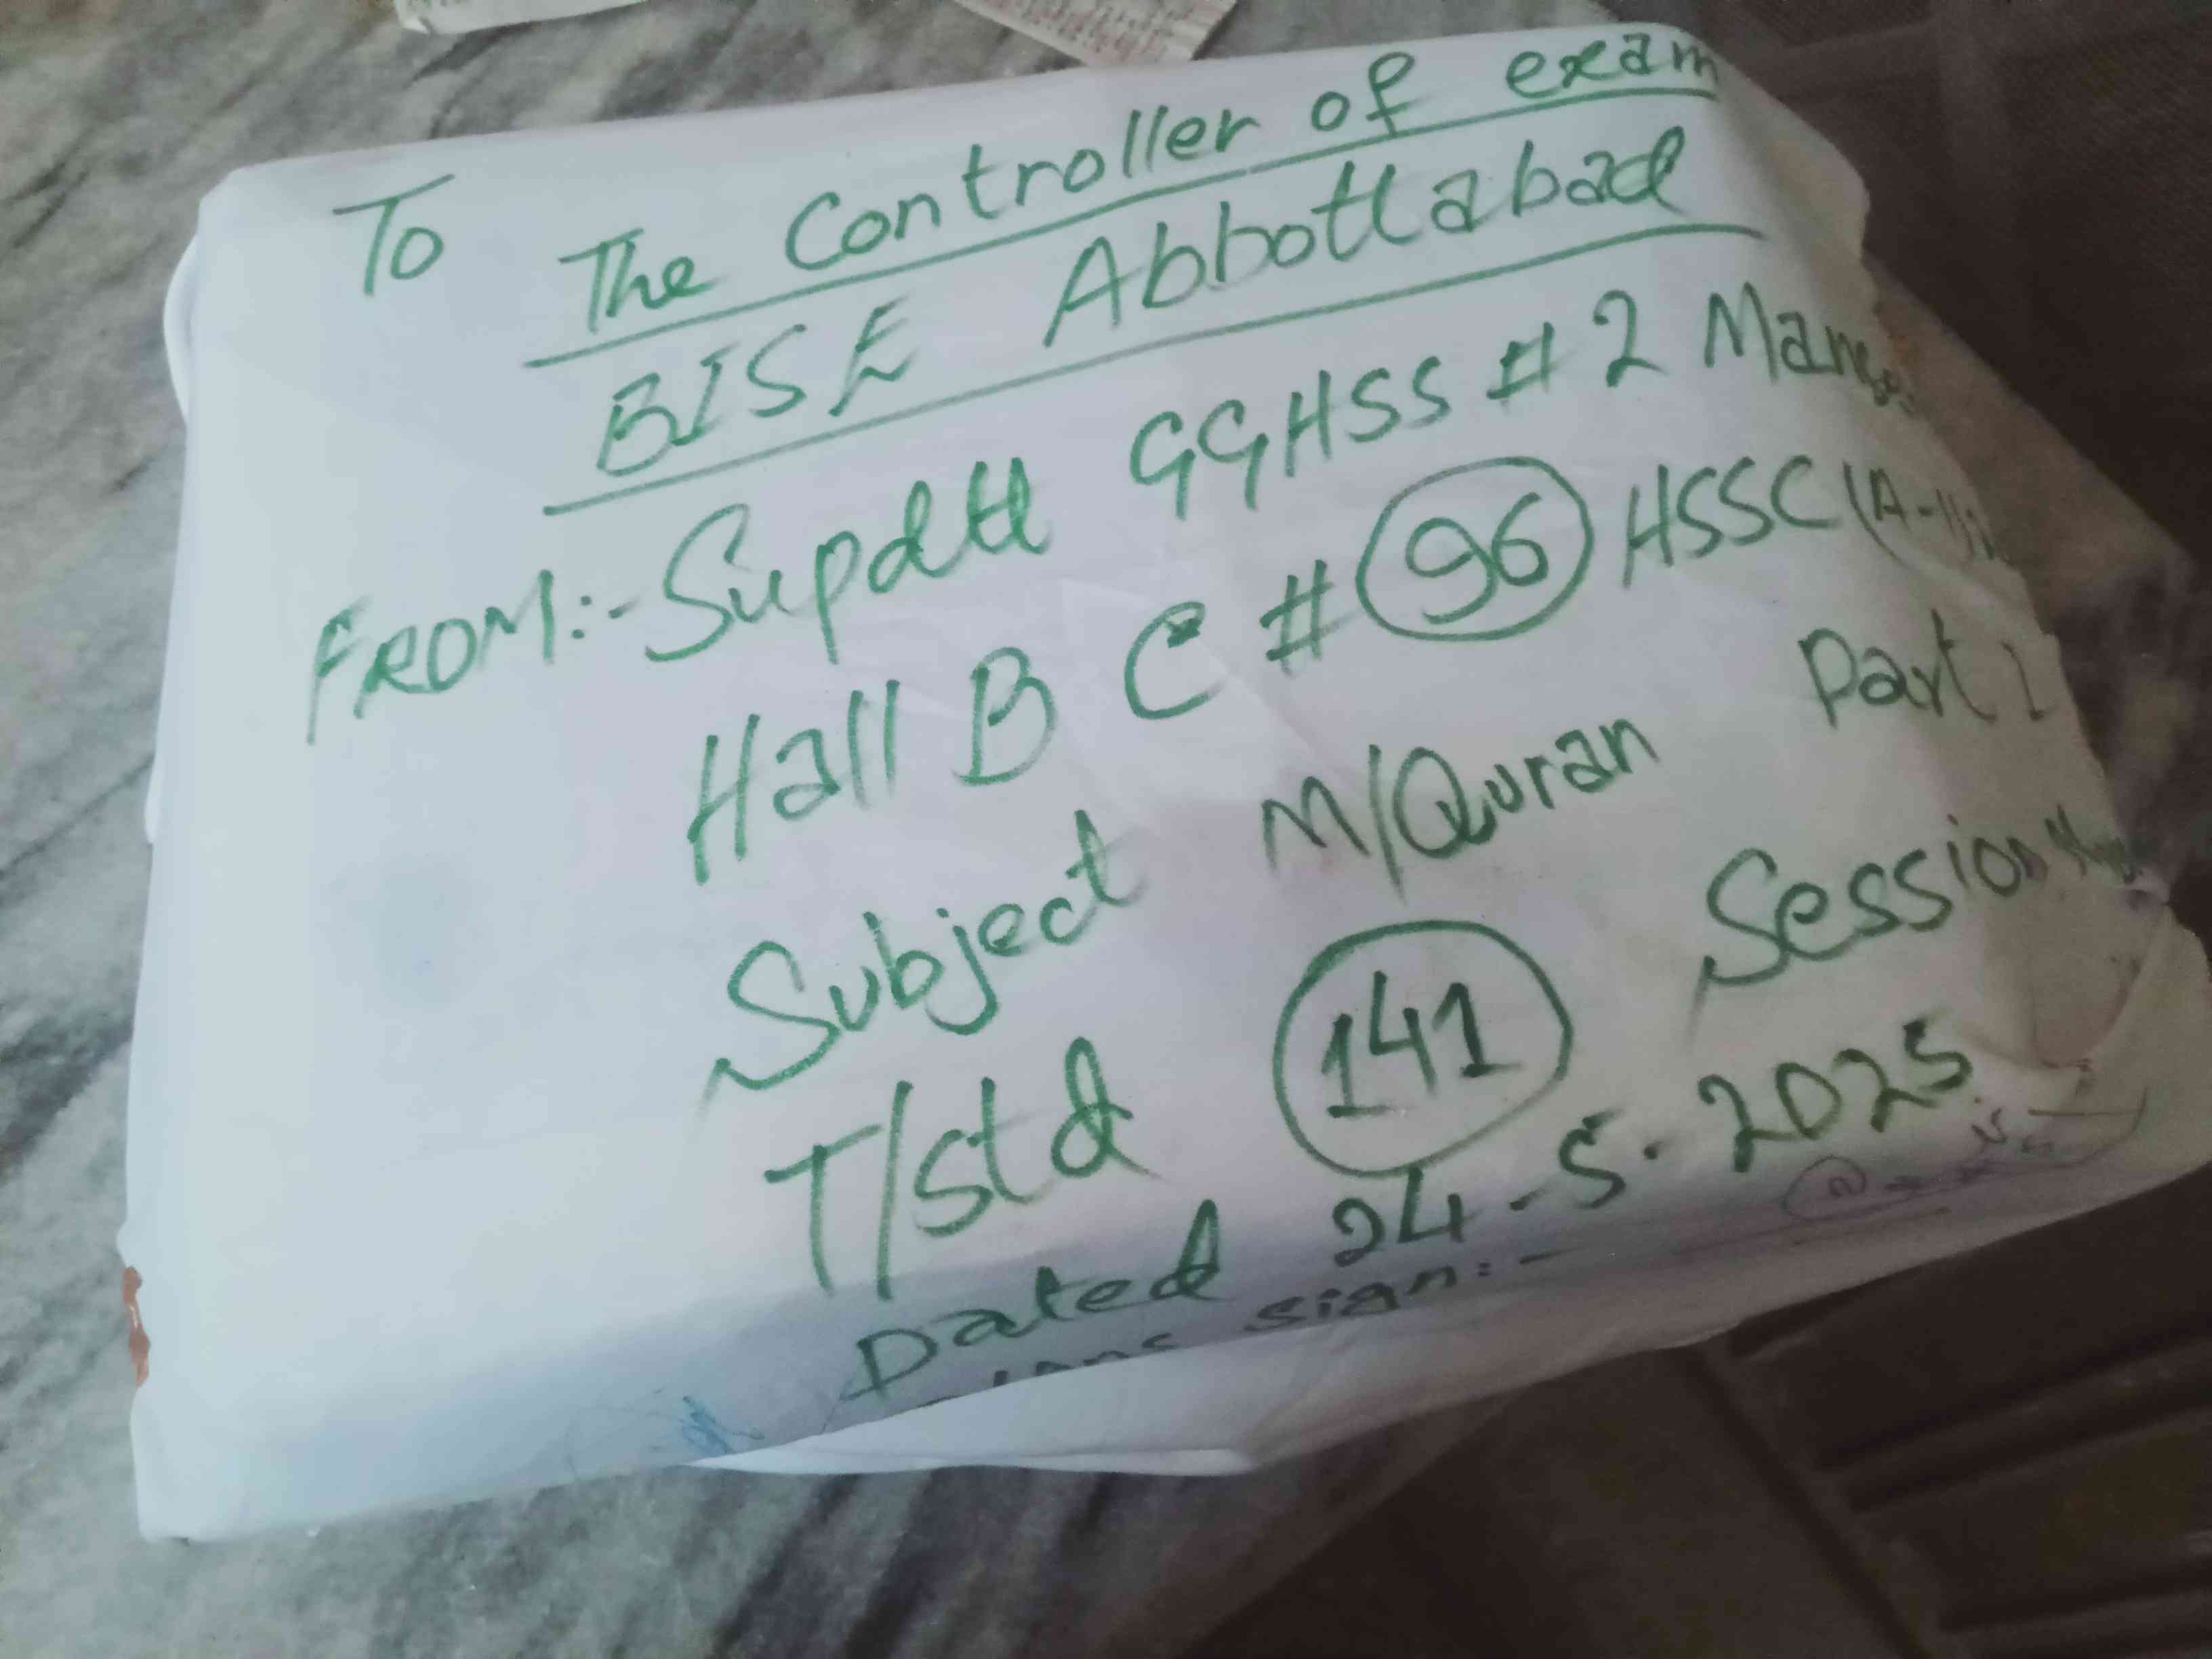 To The Controller of exam
BISE Abbottabad
FROM:- Supdtt GGHSS # 2
Hall B C # 96 HSSC
Subject M/Quran Part
T/std 141 Session
Dated 24-5-2025
sign:-